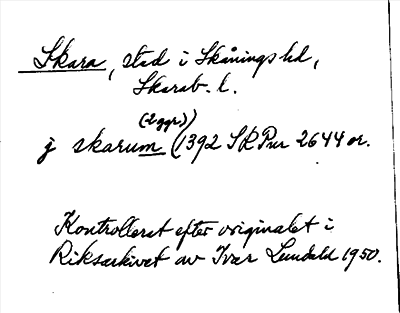 Skara, stad i Skånings hd,
Skarab. l.
(2 ggr)
j skarum (1392 SRPur 2644 or.
Kontrollerat efter originalet i
Riksarkivet av Ivar Lundahl 1950.